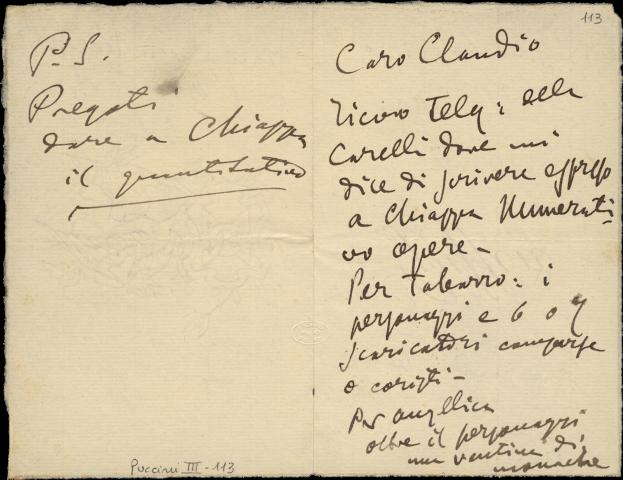 113
Caro Claudio
ricevo Telg: della
Carelli dove mi
dice di scrivere espresso
a Chiappa Numerati-
vo opere -
Per Tabarro: i
personaggi e 6 o 7
scaricatori comparse
o coristi -
Per Angelica
oltre il personaggi
una ventina di
monache
P.S.
Pregoti
dare a Chiappa
il quantitativo
Puccini III - 113